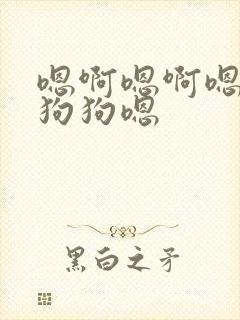 嗯啊嗯啊嗯
狗狗嗯
黑白之矛